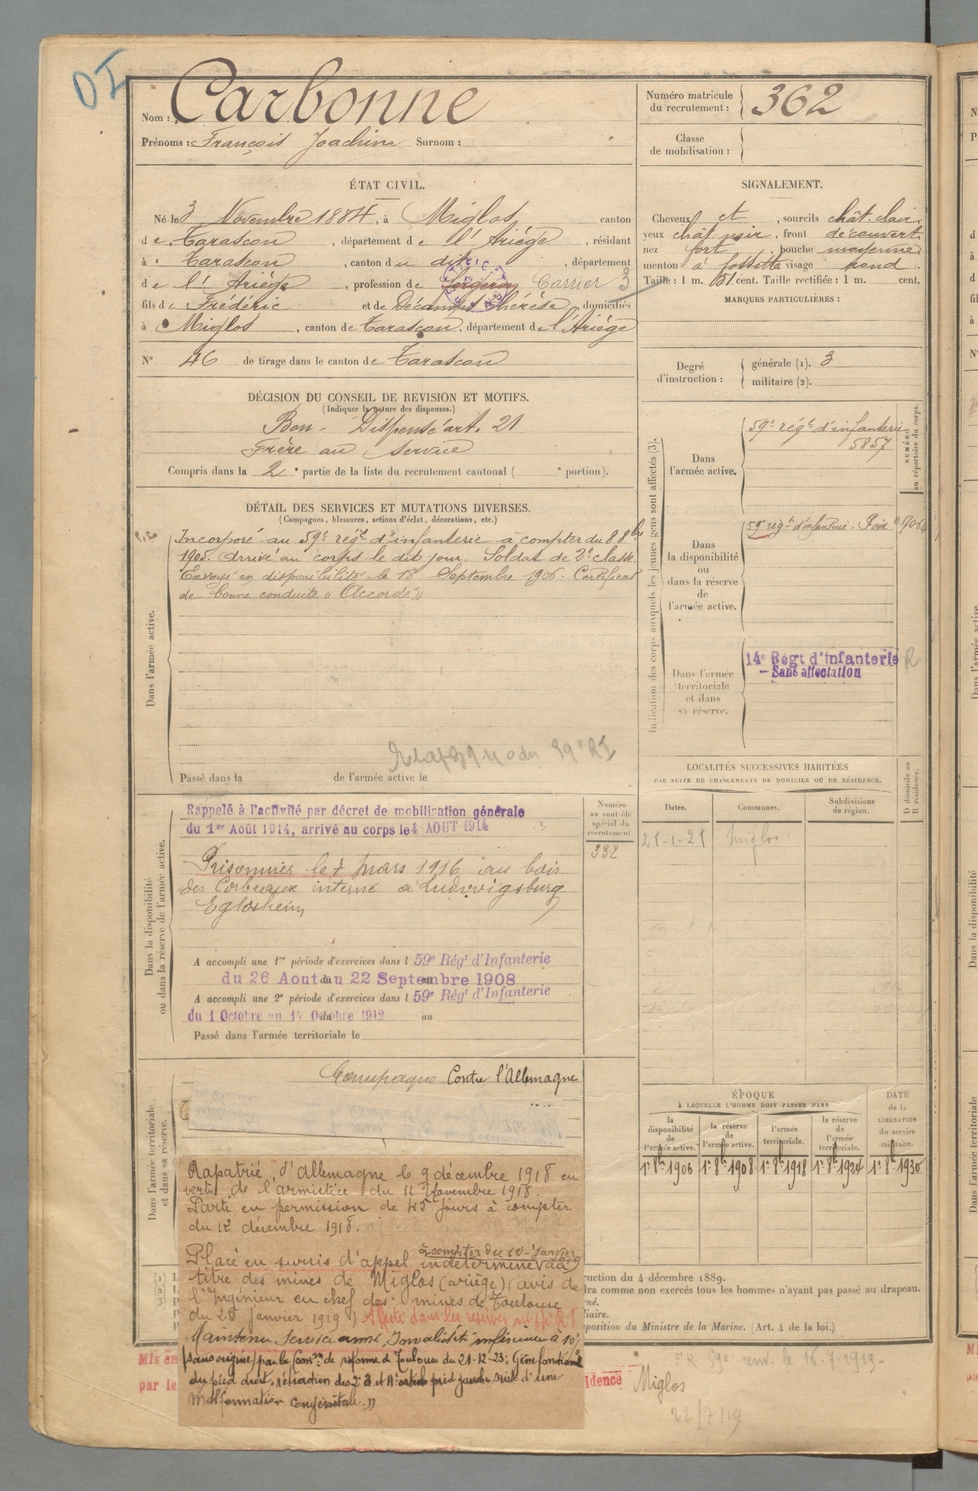 DI
Nom : Carbonne
Prénoms : François Joachim Surnom :
Numéro matricule du recrutement : 362
Classe de mobilisation :
ÉTAT CIVIL.
Né le 3 Novembre 1884, à Miglos, canton
de Tarascon, département de l'Ariège, résidant
à Tarascon, canton du dit, département
de l'Ariège, profession de Carrier
fils de Frédéric et de Decamps Thérèse, domiciliés
à Miglos, canton de Tarascon, département de l'Ariège
N° 46 de tirage dans le canton de Tarascon
SIGNALEMENT.
Cheveux et, sourcils chât. clair
yeux chât noir, front découvert
nez fort, bouche moyenne
menton à fossette visage rond.
Taille : 1 m. cent. Taille rectifiée : 1 m. cent.
MARQUES PARTICULIÈRES :
Degré d'instruction :
générale (1). 3
militaire (2).
DÉCISION DU CONSEIL DE REVISION ET MOTIFS.
(Indiquer la nature des dispenses.)
Bon - Dispensé art. 21
Frère au service
Compris dans la 2e partie de la liste du recrutement cantonal ( e portion).
DÉTAIL DES SERVICES ET MUTATIONS DIVERSES.
(Campagnes, blessures, actions d'éclat, décorations, etc.)
Dans l'armée active.
Incorporé au 59e régt d'infanterie à compter du 8 8bre
1905. Arrivé au corps le dit jour. Soldat de 2e classe.
Envoyé en disponibilité le 18 Septembre 1906. Certificat
de bonne conduite « Accordé »
Passé dans la de l'armée active le
Indication des corps auxquels les jeunes gens sont affectés (3).
NUMÉRO au répertoire du corps.
Dans l'armée active.
59e régt d'infanterie
5857
Dans la disponibilité ou dans la réserve de l'armée active.
59e régt d'infanterie. Foix
Dans l'armée territoriale et dans sa réserve.
14e Régt d'infanterie R
- Sans affectation
LOCALITÉS SUCCESSIVES HABITÉES
PAR SUITE DE CHANGEMENTS DE DOMICILE OU DE RÉSIDENCE.
Dates. Communes. Subdivisions de région. D domicile ou R résidence.
21-1-21 Miglos.
Dans la disponibilité ou dans la réserve de l'armée active.
Numéro au contrôle spécial du recrutement.
332
Rappelé à l'activité par décret de mobilisation générale
du 1er Août 1914, arrivé au corps le 4 AOUT 1914
Prisonnier le 7 mars 1916 au bois
des Corbeaux interné à Ludwigsburg
Eglosheim
A accompli une 1re période d'exercices dans l 59e Régt d'Infanterie
du 26 Aout au 22 Septembre 1908
A accompli une 2e période d'exercices dans l 59e Régt d'Infanterie
du 1 Octobre au 17 Octobre 1912 au
Passé dans l'armée territoriale le
Dans l'armée territoriale et dans sa réserve.
Campagne Contre l'Allemagne
Rapatrié d'Allemagne le 9 décembre 1918 en
vertu de l'armistice du 11 Novembre 1918.
Parti en permission de 45 jours à compter
du 12 décembre 1918.
Placé en sursis d'appel indéterminé
titre des mines de Miglos (Ariège) (avis de
l'Ingénieur en chef des mines de Toulouse
du 25 janvier 1919)
Maintenu service armé, Invalidité inférieure à 10%
(sans origine) par la Comon de réforme de Toulouse du 21-12-23; Gêne fonctionnelle
du pied droit, rétraction des 2 3 et 4e orteils pied gauche suite d'une
malformation congénitale. »
ÉPOQUE
À LAQUELLE L'HOMME DOIT PASSER DANS
DATE de la LIBÉRATION du service militaire.
la disponibilité de l'armée active. la réserve de l'armée active. l'armée territoriale. la réserve de l'armée territoriale.
1r 8bre 1906 1r 8bre 1908 1r 8bre 1918 1r 8bre 1924 1r 8bre 1930
ruction du 4 décembre 1889.
dra comme non exercés tous les hommes n'ayant pas passé au drapeau.
position du Ministre de la Marine. (Art. 4 de la loi.)
Mis en
par le
idence
FR 59e renv. le 16-7-1919-
Miglos
22/7/19